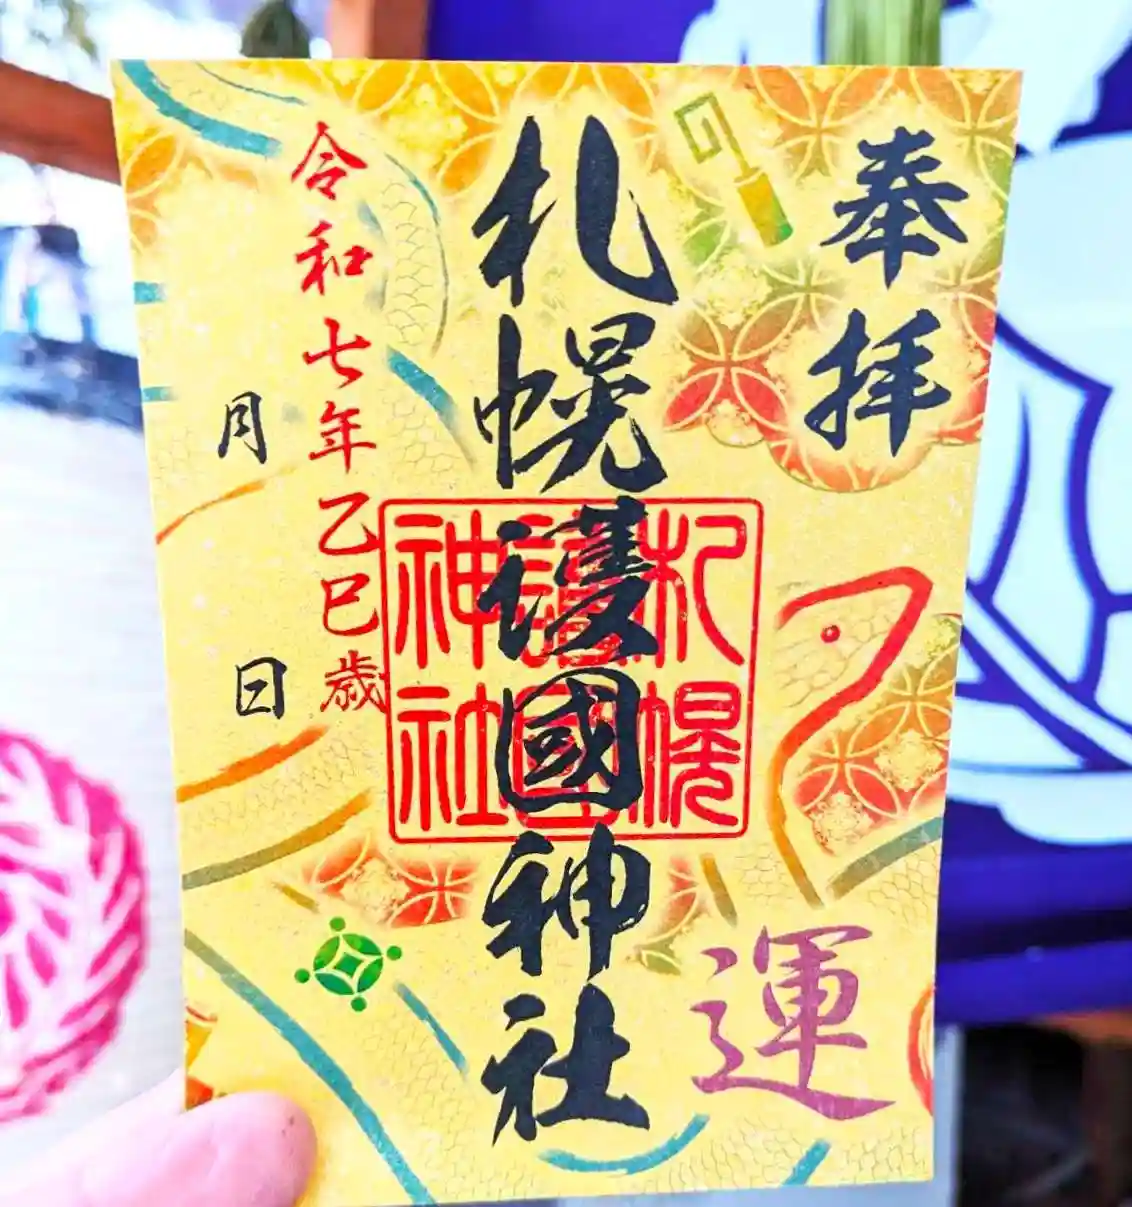 奉拝
運
札幌護國神社
札幌
護國
神社
令和七年乙巳歳
月 日